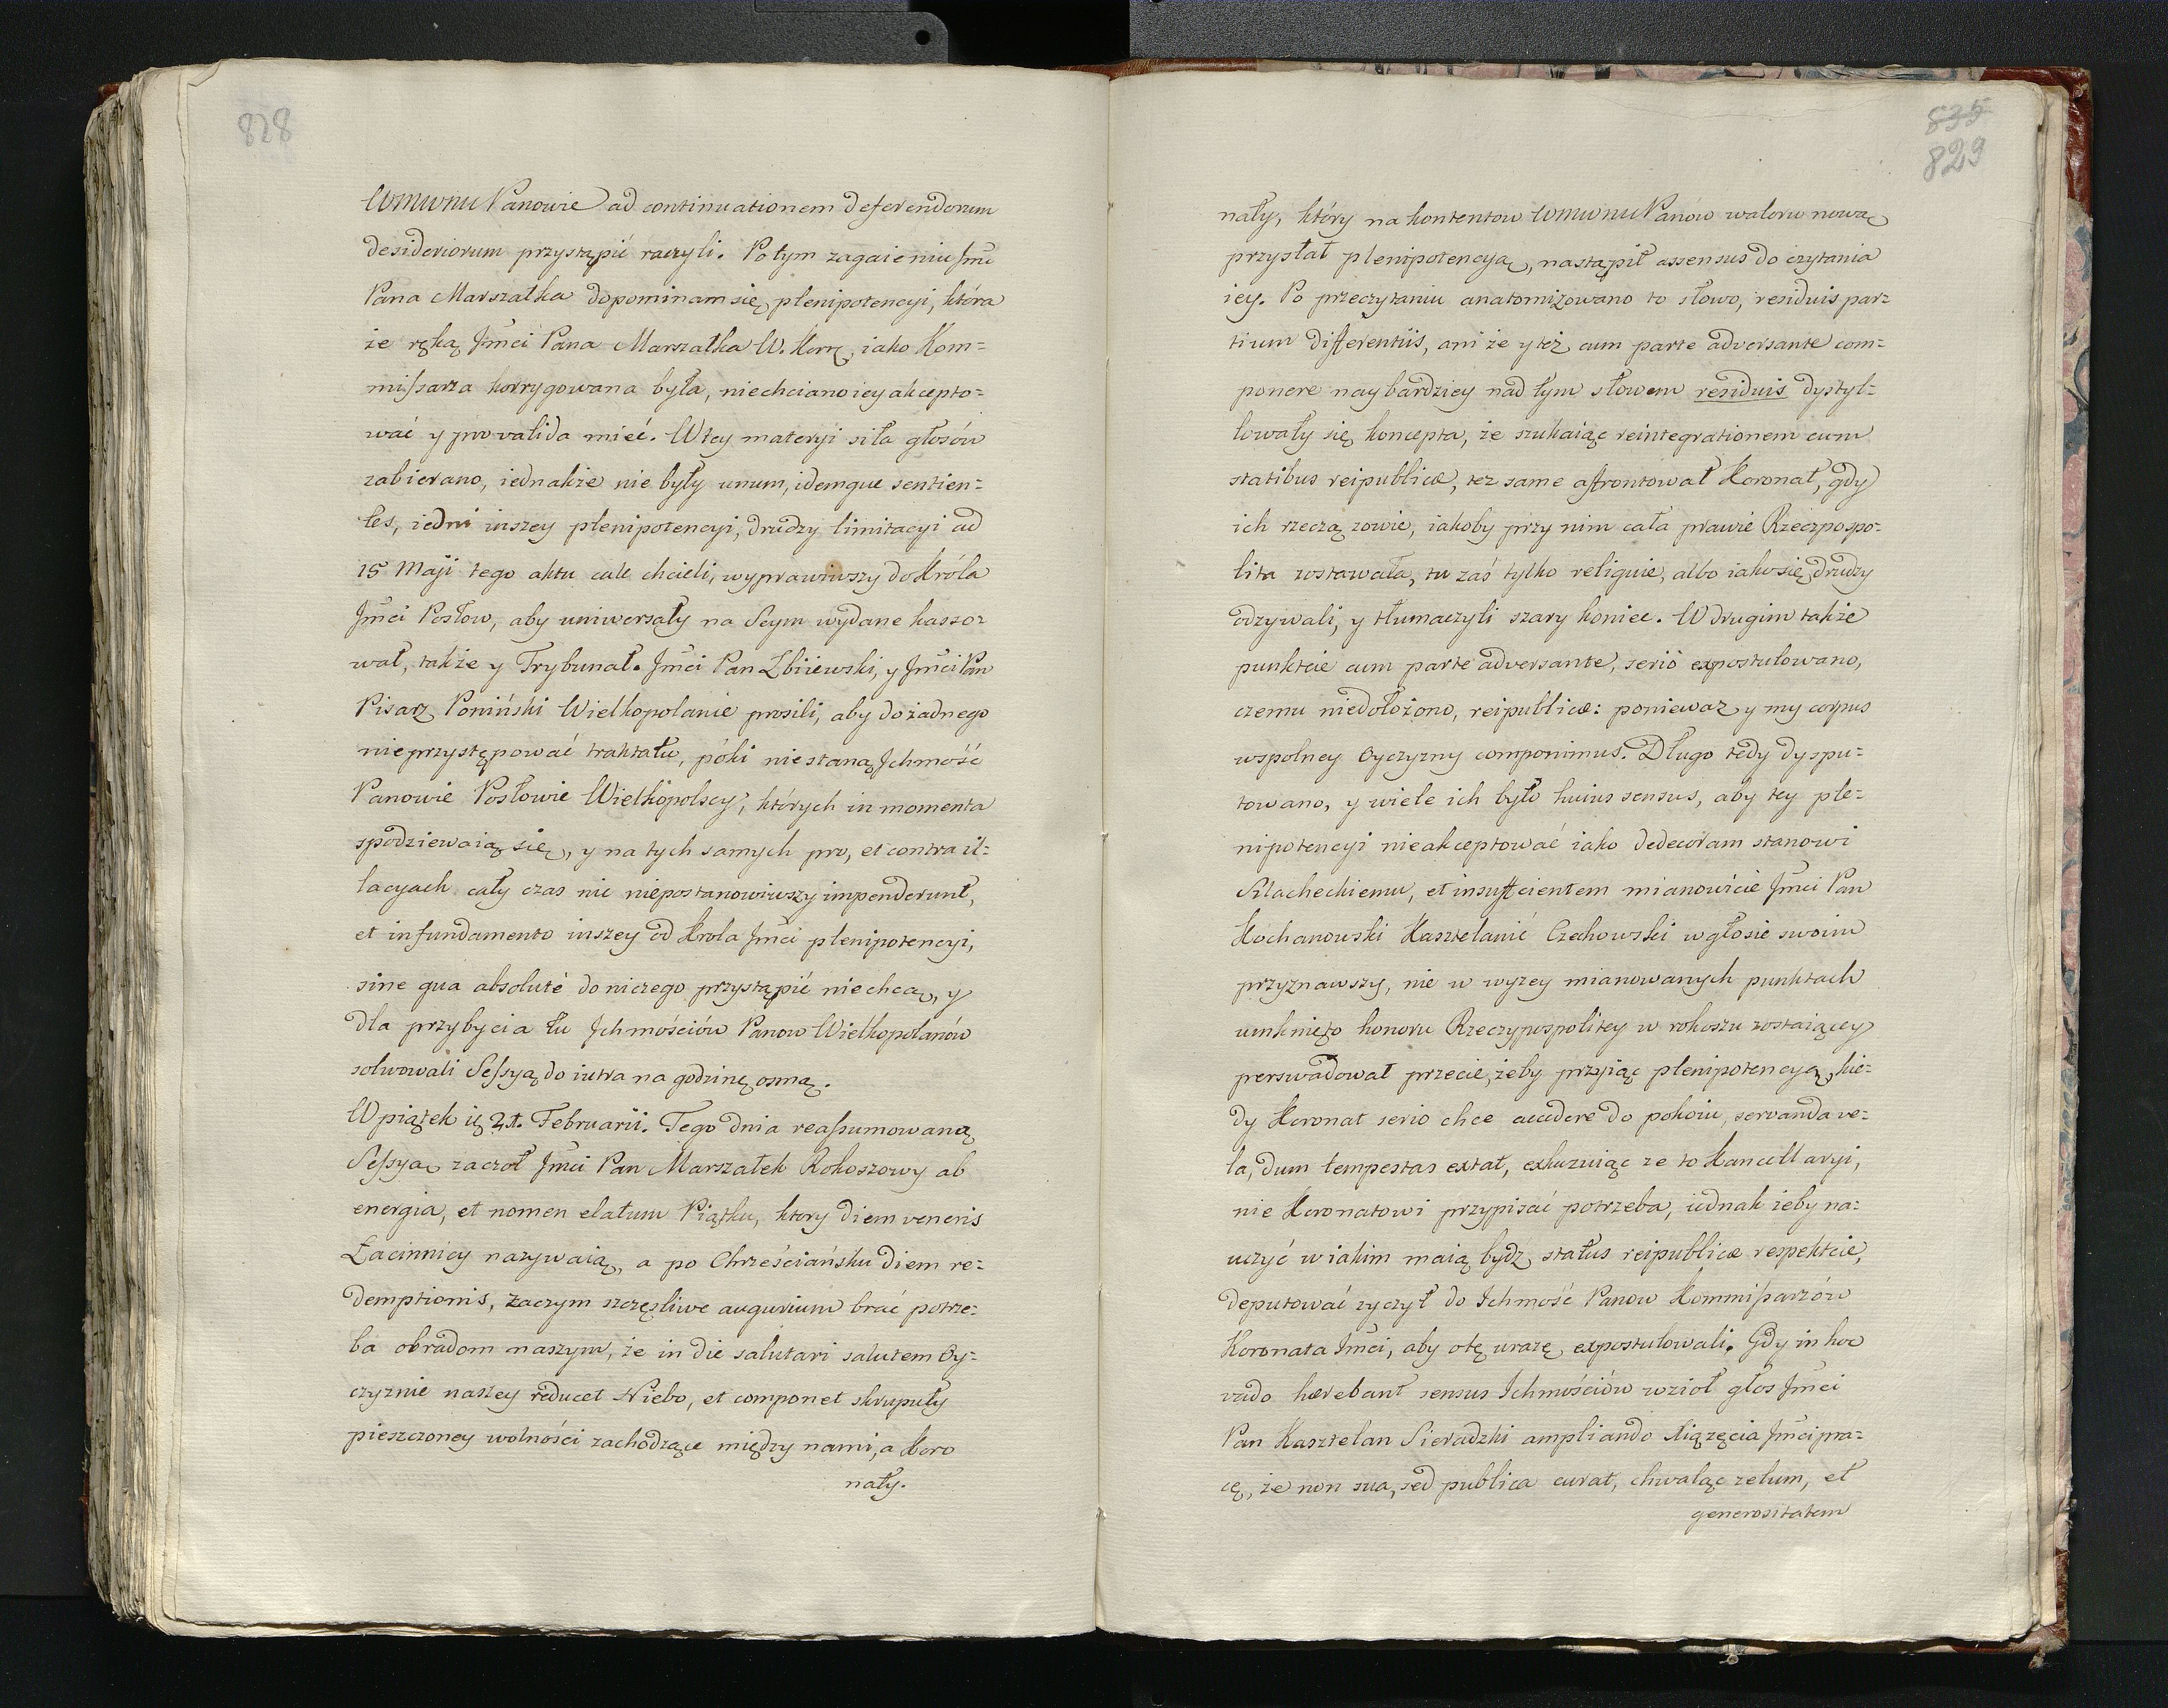 828
WmwnuPanowie ad continuationem deferendorum
desideriorum przystąpić raczyli. Po tym zagaieniu Jmć
Pana Marszałka dopominam się plenipotencyi, która
że ręką Jmći Pana Marszałka W. Korr, iako Kom=
missarza korrygowana była, niechciano iey akcepto=
wać y pro valida mieć. W tey materyi siła głosów
zabierano, iednakże nie były unum, idemque sentien=
tes, iedni inszey plenipotencyi, drudzy limitacyi ad
15 Maji tego aktu cale chcieli, wyprawiwszy do Króla
Jmći Posłow, aby uniwersały na Seym wydane kasso=
wał, także y Trybunał. Jmći Pan Zbiiewski, y Jmći Pan
Pisarz Poniński Wielkopolanie prosili, aby do żadnego
nieprzystępować traktatu, póki niestaną Jchmość
Panowie Posłowie Wielkopolscy, których in momenta
spodziewaią się, y na tych samych pro, et contra il=
lacyach cały czas nic niepostanowiwszy impenderunt,
et in fundamento inszey od Krola Jmći plenipotencyi,
sine qua absolutè do niczego przystąpić niechcą, y
dla przybycia tu Jchmościów Panow Wielkopolanów
solwowali Sessyą do iutra na godzinę osmą.
W piątek ię 21. Februarii. Tego dnia reassumowaną
Sessyą zaczoł Jmći Pan Marszałek Rokoszowy ab
energia, et nomen elatum Piątku, ktory diem veneris
Łacinnicy nazywaią, a po Chrześciańsku diem re=
demptionis, zaczym szczęsliwe augurium brać potrze=
ba obradom naszym, że in die salutari salutem Oy=
czyznie naszey reducet Niebo, et componet skrupuły
pieszczoney wolności zachodzące między nami, a Koro
naty.
835
829
naty, który na kontentow WmwnuPanów waloru nową
przysłał plenipotencyą, nastąpił assensus do czytania
iey. Po przeczytaniu anatomizowano to słowo, residuis par=
tium differentiis, ani że y też cum parte adversante com=
ponere naybardziey nad tym słowem residuis dystyl=
lowały się koncepta, że szukaiąc reintegrationem cum
statibus reipublicæ, tez same affrontował Koronat, gdy
ich rzeczą zowie, iakoby przy nim cała prawie Rzeczpospo=
lita zostawała, tu zaś tylko reliquie, albo iako się drudzy
odzywali, y tłumaczyli szary koniec. W drugim także
punktcie cum parte adversante, seriò expostulowano,
czemu niedołożono, reipublicæ: poniewaz y my corpus
wspolney Oyczyzny componimus. Długo tedy dyspu=
towano, y wiele ich było huius sensus, aby tey ple=
nipotencyi nieakceptować iako dedecoram stanowi
Szlacheckiemu, et insufficientem mianowicie Jmći Pan
Kochanowski Kasztelanić Czechowski w głosie swoim
przyznawszy, nie w wyzey mianowanych punktach
umknięto honoru Rzeczypospolitey w rokoszu zostaiącey
perswadował przecie, żeby przyiąc plenipotencyą, kie=
dy Koronat serio chce accedere do pokoiu, servanda ve=
la, dum tempestas extat, exkuzuiąc ze to Kancellaryi,
nie Koronatowi przypisać potrzeba, iednak żeby na=
uczyć w iakim maią bydz status reipublicæ respektcie,
deputować zyczył do Ichmość Panow Kommissarzów
Koronata Jmći, aby o tę urazę expostulowali. Gdy in hoc
vado hærebant sensus Ichmościów wzioł głos Jmći
Pan Kasztelan Sieradzki ampliando Xiązęcia Jmći pra=
cę, że non sua, sed publica curat, chwaląc zelum, et
generositatem